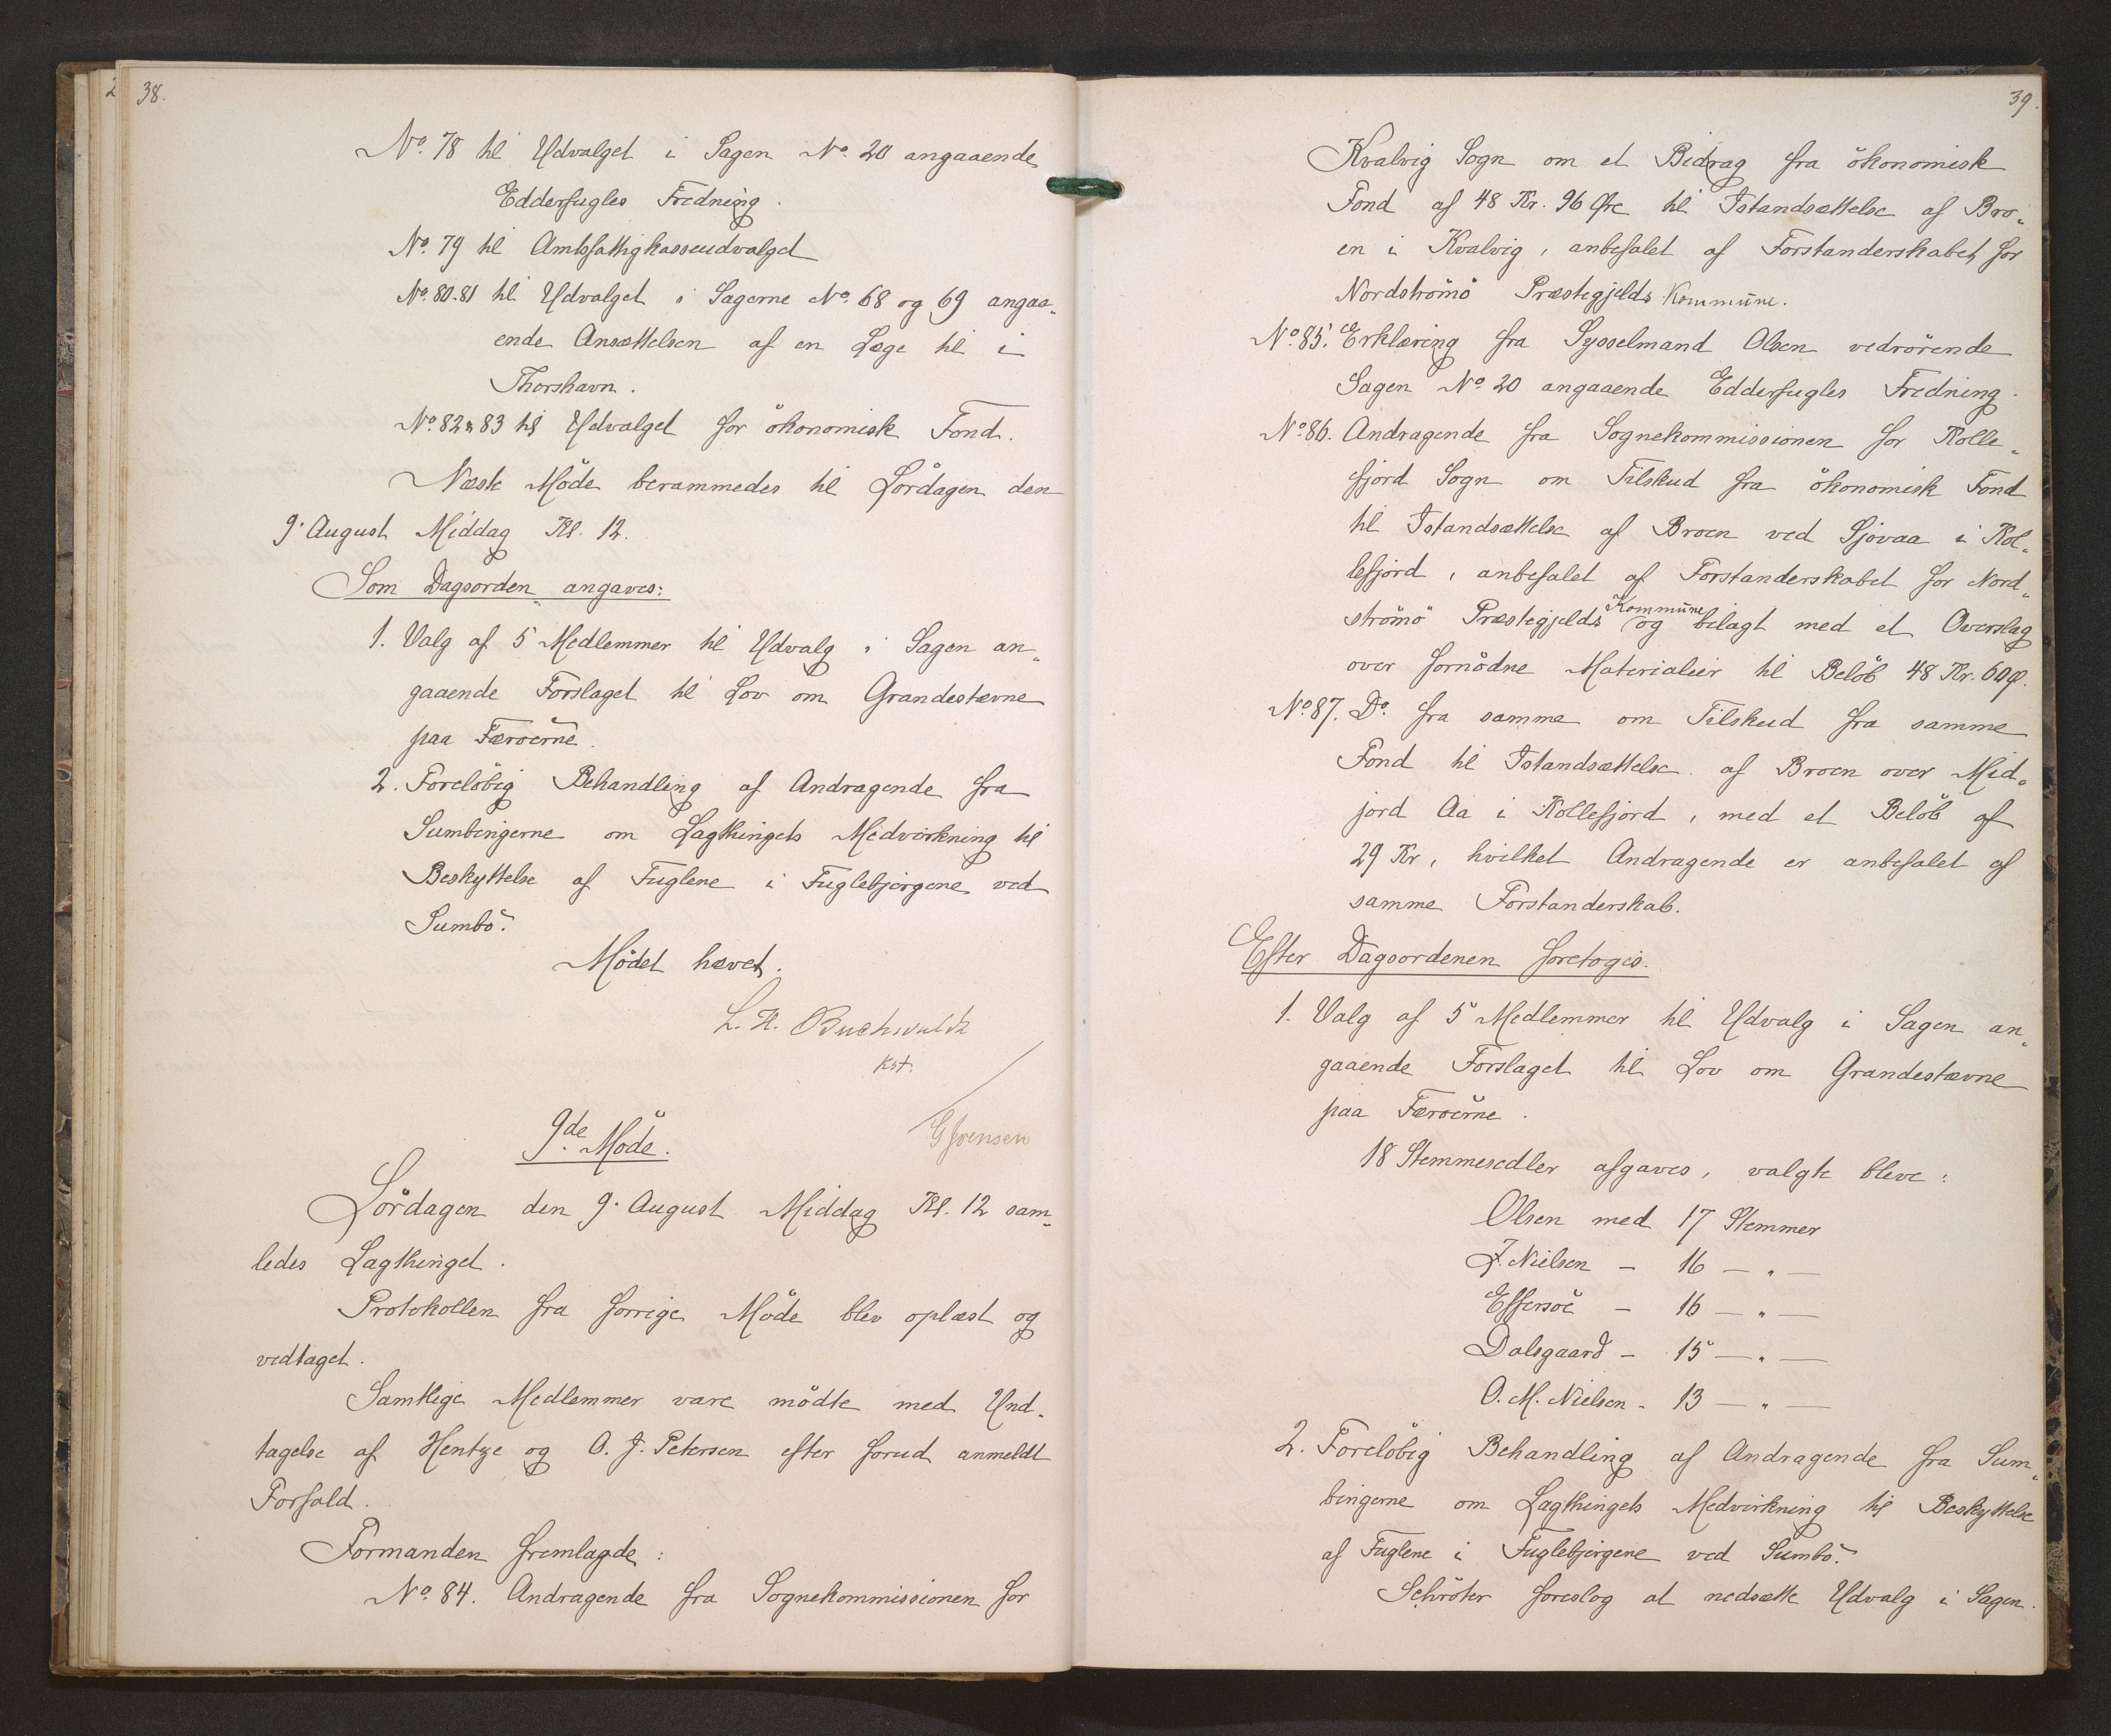 38.
No. 78 til Udvalget i Sagen No. 20 angaaende
Edderfugles Fredning.
No. 79 til Amtsfattigkasseudvalget
No. 80-81 til Udvalget i Sagerne No. 68 og 69 angaa-
ende Ansættelsen af en Læge til i
Thorshavn.
No. 82 & 83 til Udvalget for økonomisk Fond.
Næste Møde berammedes til Lørdagen den
9. August Middag Kl. 12.
Som Dagsorden angaves:
1. Valg af 5 Medlemmer til Udvalg i Sagen an-
gaaende Forslaget til Lov om Grandestævne
paa Færøerne.
2. Foreløbig Behandling af Andragende fra
Sumbingerne om Lagthingets Medvirkning til
Beskyttelse af Fuglene i Fuglebjergene ved
Sumbø.
Mødet hævet.
L. H. Buchwaldt
kst.
9de Møde.
Lørdagen den 9. August Middag Kl. 12 sam-
ledes Lagthinget.
Protokollen fra forrige Møde blev oplæst og
vedtaget.
Samtlige Medlemmer vare mødte med Und-
tagelse af Hentze og O. J. Petersen efter forud anmeldt
Forfald.
Formanden fremlagde:
No. 84. Andragende fra Sognekommissionen for
39.
Kvalvig Sogn om et Bidrag fra økonomisk
Fond af 48 Kr. 96 Øre til Istandsættelse af Bro-
en i Kvalvig, anbefalet af Forstanderskabet for
Nordstrømø Præstegjelds Kommune.
No. 85. Erklæring fra Sysselmand Olsen vedrørende
Sagen No. 20 angaaende Edderfugles Fredning.
No. 86. Andragende fra Sognekommissionen for Kolle-
fjord Sogn om Tilskud fra økonomisk Fond
til Istandsættelse af Broen ved Sjovaa i Kol-
lefjord, anbefalet af Forstanderskabet for Nord-
strømø Præstegjelds Kommune og bilagt med et Overslag
over fornødne Materialier til Beløb 48 Kr. 60 Ø.
No. 87. Do. fra samme om Tilskud fra samme
Fond til Istandsættelse af Broen over Mid-
jord Aa i Kollefjord, med et Beløb af
29 Kr, hvilket Andragende er anbefalet af
samme Forstanderskab.
Efter Dagsordenen foretoges.
1. Valg af 5 Medlemmer til Udvalg i Sagen an-
gaaende Forslaget til Lov om Grandestævne
paa Færøerne.
18 Stemmesedler afgaves, valgte bleve:
Olsen med 17 Stemmer
J. Nielsen – 16 — " —
Effersøe – 16 — " —
Dalsgaard – 15 — " —
O. M. Nielsen – 13 — " —
2. Foreløbig Behandling af Andragende fra Sum-
bingerne om Lagthingets Medvirkning til Beskyttelse
af Fuglene i Fuglebjergene ved Sumbø.
Schrøter foreslog at nedsætte Udvalg i Sagen.